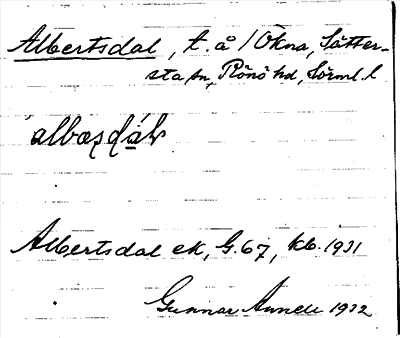 Albertsdal, t. å / Ökna, Sätter-
sta sn, Rönö hd, Sörml. l
albæșdạ́lv
Albertsdal ek, G. 67, kb. 1931
Gunnar Annell 1932